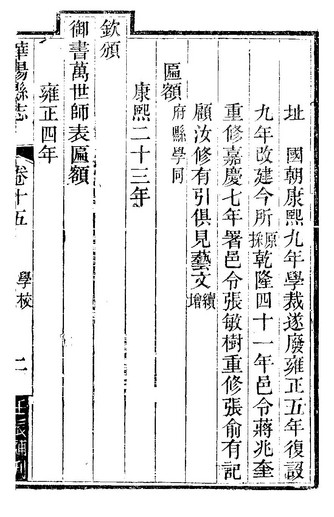 址　國朝康熙九年學裁遂廢雍正五年復設
九年改建今所原採乾隆四十一年邑令蔣兆奎
重修嘉慶七年署邑令張敏樹重修張俞有記
顧汝修有引俱見藝文續增
匾額
府縣學同
康熙二十三年
欽頒
御書萬世師表匾額
雍正四年
華陽縣志
卷十五
學校
二